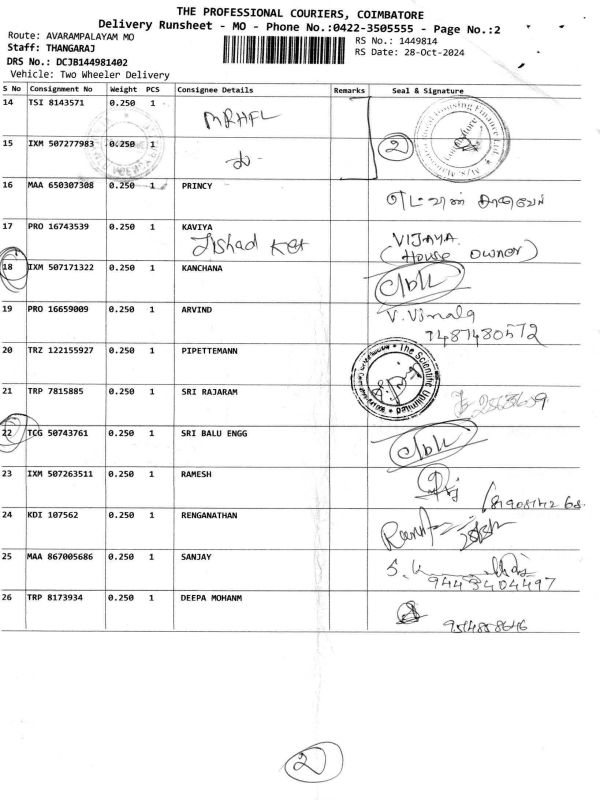 THE PROFESSIONAL COURIERS, COIMBATORE
Delivery Runsheet - MO - Phone No.:0422-3505555 - Page No.:2
Route: AVARAMPALAYAM MO
RS No.: 1449814
Staff: THANGARAJ
RS Date: 28-Oct-2024
DRS No.: DCJB144981402
Vehicle: Two Wheeler Delivery
S No Consignment No Weight PCS Consignee Details Remarks Seal & Signature
14 TSI 8143571 0.250 1 MRHFL
15 IXM 507277983 0.250 1 2
16 MAA 650307308 0.250 1 PRINCY
17 PRO 16743539 0.250 1 KAVIYA VIJAYA
(House OWNER)
18 IXM 507171322 0.250 1 KANCHANA
19 PRO 16659009 0.250 1 ARVIND V. Vimala
7487480572
20 TRZ 122155927 0.250 1 PIPETTEMANN The Scientific Unlimited
21 TRP 7815885 0.250 1 SRI RAJARAM
22 TCG 50743761 0.250 1 SRI BALU ENGG
23 IXM 507263511 0.250 1 RAMESH
24 KDI 107562 0.250 1 RENGANATHAN
25 MAA 867005686 0.250 1 SANJAY
9443404497
26 TRP 8173934 0.250 1 DEEPA MOHANM
9514858646
2